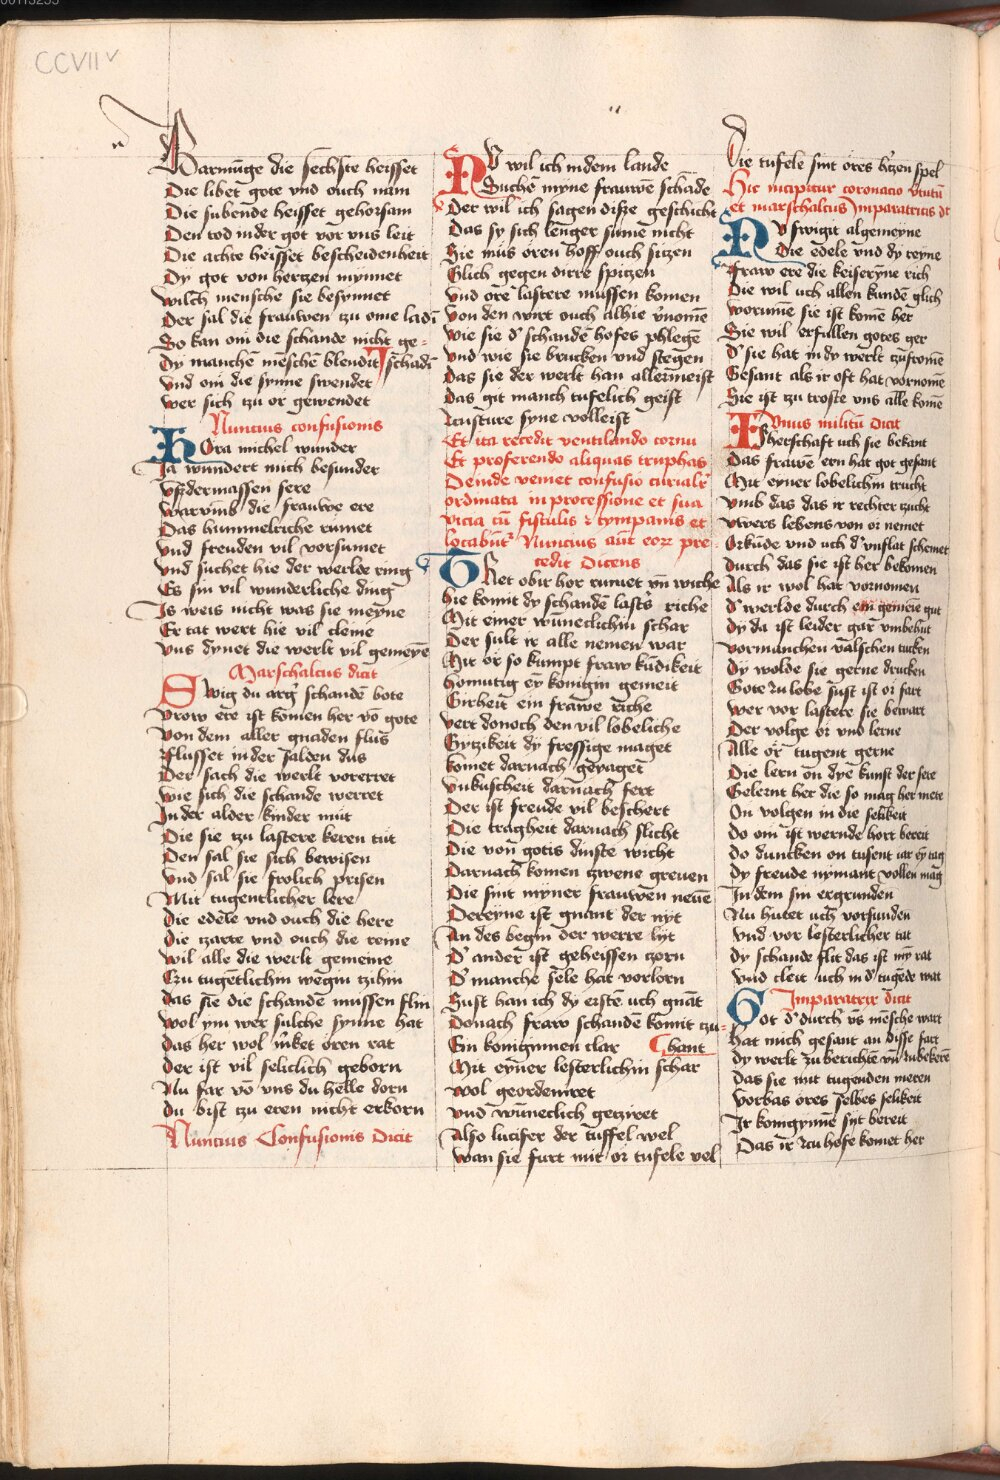 CCVII v
Barmu̅ge die sechste heisset
Die libet gote vnd ouch nam
Die subende heisset gehorsam
Den tod in der got vor vns leit
Die achte heisset bescheidenheit
Dy got von hertzen mynnet
Wilch mensche sie besynnet
Der sal die frauwen tzu ome ladi̅
So kan om die schande nicht ge=
schadi̅
Dy manche̅ me̅sche̅ blendit
Vnd om die synne swendet
Wer sich tzu or gewendet
Nuncius confusionis
Hora michel wunder
Ja wundert mich besunder
Vssdermassen sere
Warvmb die frauwe ere
Das hummelriche rumet
Vnd freuden vil vorsumet
Vnd suchet hie der werlde ring
Es sin vil wunderliche ding
Is weis nicht was sie meyne
Er tat wert hie vil cleine
Vns dynet die werlt vil gemeyne̅
Marschalcus dicit
Swig du arg' schande̅ bote
Vrow ere ist komen her vo̅ gote
Von dem aller gnaden flus
Flusset in der salden dus
Der sach die werlt vorerret
Wie sich die schande werret
In der alder kinder mut
Die sie tzu lastere keren tut
Den sal sie sich bewisen
Vnd sal sie frolich prisen
Mit tugentlicher lere
Die edele vnd ouch die here
Die tzarte vnd ouch die reine
Wil alle die werlt gemeine
Tzu tuge̅tlichin wegin tzihin
Das sie die schande̅ mussen flin
Wol ym wer sulche synne hat
Das her wol m̅ket oren rat
Der ist vil selichch geborn
Nu far vo̅ vns du helle dorn
Du bist tzu eren nicht erkorn
Nuncius Confusionis Dicit
NV wil ich in dem lande
Suche̅ myne frauwe̅ schade
Der wil ich sagen disze geschicht
Das sy sich lenger sume nicht
Sie mus oren hoff ouch sitzen
Glich gegen dirre spitzen
Vnd ore lastere mussen komen
Von den wirt ouch alhie v̅nome̅
Wie sie d' schande̅ hofes phlege̅
Vnd wie sie brucken vnd stegen
Das sie der werlt han allermeist
Das git manch tufelich geist
Zcusture syne volleist
Et ita recedit ventilando cornu
Et proferendo aliquas truphas
Deinde veniet confusio curialit'
ordinata in processione et sua
vicia cu̅ fistulis z tympanis et
locabu̅t' Nuncius aut̅ eor̅ pre=
cedit Dicens
Tret obir hor rumet vn̅ wiche
Hie komit dy schande̅ last's riche
Mit einer wu̅neclichin schar
Der sult ir alle nemen war
Mit or so kumpt fraw ku̅dikeit
Homutig ey̅ konigin gemeit
Girheit ein frawe riche
Vert donoch den vil lobeliche
Gytzikeit dy fressige maget
Komet darnach geyaget
Vnkuscheit darnach fert
Der ist freude vil beschert
Die tragheit darnach slicht
Die von gotis dinste wicht
Darnach komen tzwene greuen
Die sint myner frauwen neue̅
Der eyne ist gnant der nyt
An des begin der werre lyt
D' ander ist geheissen tzorn
D' manche sele hat vorlorn
Sust han ich dy erste uch gna̅t
Donach fraw schande̅ komit tzu=
hant
Ein koniginnen clar
Mit eyner lesterlichin schar
Wol geordenret
Vnd wu̅neclich getziret
Also lucifer der tuffel wel
Wan sie furt mit or tufele vel
Die tufele sint ores h'tzen spel
Hic incipitur coronacio v̅tutu̅
et marschalcus Imparatricis dt
NV swigit algemeyne
Die edele vnd dy reyne
Fraw ere die keiseryne rich
Die wil uch allen kunde̅ glich
Worumme sie ist kome̅ her
Sie wil erfullen gotes ger
D' sie hat in dy werlt tzufrome̅
Gesant als ir oft hat vornome̅
Sie ist tzu troste vns alle kome̅
Vnus militu̅ dicit
Ir herschaft uch sie bekant
Das frawe̅ ern hat got gesant
Mit eyner lobelichin trucht
Vmb das das ir rechter tzucht
Vwers lebens von or nemet
Orku̅de vnd uch d' vnflat schemet
Durch das sie ist her bekomen
Als ir wol hat vornomen
D' werlde durch ein gemeie gut
Dy da ist leider gar vmbehut
Vor manchen valschen tucken
Dy wolde sie gerne drucken
Gote zu lobe sust ist or fart
Wer vor lastere sie bewart
Der volge or vnd lerne
Alle or tugent gerne
Die lern on dye kunst der sere
Gelernt her die so mag her mere
In volgen in die selikeit
Do om ist wernde hort bereit
Do duncken on tusent iar ey̅ tag
Dy freude nymant vollen mag
In dem sin ergrunden
Nu hutet uch vor sunden
Vnd vor lesterlicher tat
Dy schande flit das ist my̅ rat
Vnd cleit uch in d' tugede wat
Imparatrix dicit
Got d' durch vns me̅sche wart
Hat mich gesant an disse fart
Dy werlt zu berichte̅ vn̅ zu bekere̅
Das sie mit tugenden meren
Vorbas ores selbes selikeit
Ir konigynne̅ syt bereit
Das ir zcu hofe komet her